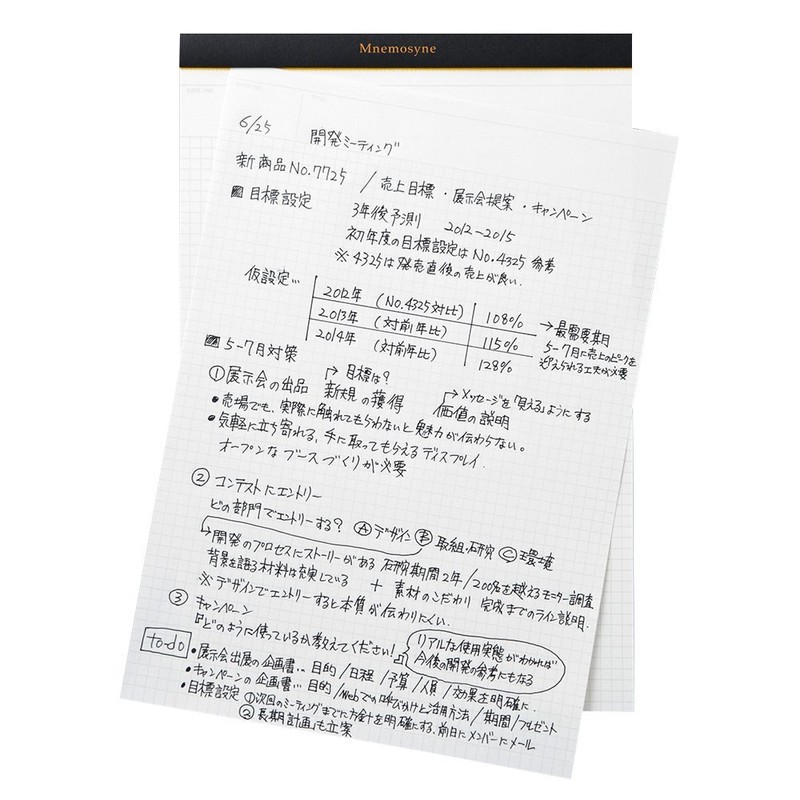 Mnemosyne
6/25 開発ミーティング
新商品No.7725 / 売上目標・展示会提案・キャンペーン
目標設定 3年後予測 2012-2015
初年度の目標設定はNo.4325 参考
※4325は発売直後の売上が良い.
仮設定…
2012年 (No.4325対比) 108%
2013年 (対前年比) 115%
2014年 (対前年比) 128%
→最需要期
5-7月に売上のピークを
迎えられる工夫が必要
5-7月対策
①展示会の出品 →目標は? 新規の獲得
→メッセージを「見える」ようにする
価値の説明
•売場でも、実際に触れてもらわないと魅力が伝わらない。
•気軽に立ち寄れる、手に取ってもらえるディスプレイ.
オープンなブースづくりが必要
②コンテストにエントリー
どの部門でエントリーする? Ⓐデザイン Ⓑ取組・研究 Ⓒ環境
→開発のプロセスにストーリーがある 研究期間2年/200名を越えるモニター調査
背景を語る材料は充実している + 素材のこだわり 完成までのライン説明.
※デザインでエントリーすると本質が伝わりにくい.
③キャンペーン
『どのように使っているか教えてください!』
リアルな使用実態がわかれば
今後の開発の参考にもなる
to-do
•展示会出展の企画書… 目的/日程/予算/人員/効果を明確に.
•キャンペーンの企画書… 目的/Webでの呼びかけと活用方法/期間/プレゼント
•目標設定 ①次回のミーティングまでに方針を明確にする、前日にメンバーにメール
②「長期計画」も立案